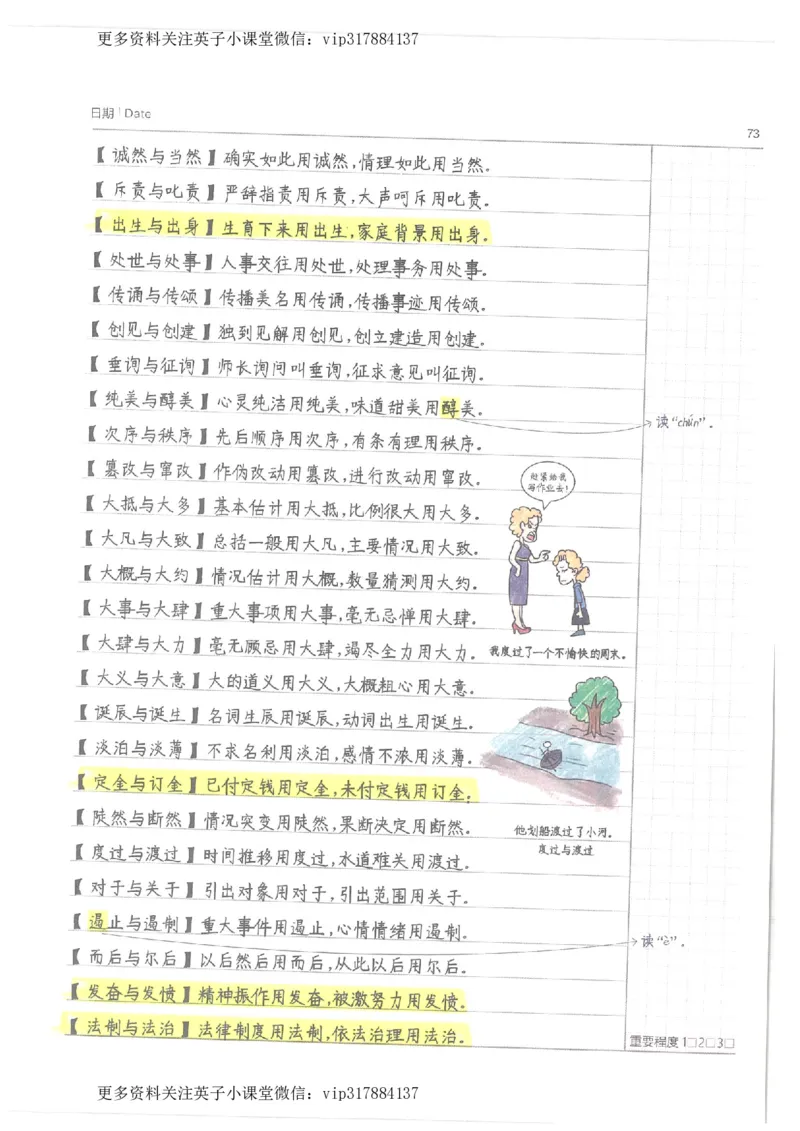 更多资料关注英子小课堂微信：vip317884137
日期 Date
73
【诚然与当然】确实如此用诚然,情理如此用当然。
【斥责与叱责】严辞指责用斥责,大声呵斥用叱责。
【出生与出身】生育下来用出生,家庭背景用出身。
【处世与处事】人事交往用处世,处理事务用处事。
【传诵与传颂】传播美名用传诵,传播事迹用传颂。
【创见与创建】独到见解用创见,创立建造用创建。
【垂询与征询】师长询问叫垂询,征求意见叫征询。
【纯美与醇美】心灵纯洁用纯美,味道甜美用醇美。
读“chún”.
【次序与秩序】先后顺序用次序,有条有理用秩序。
【篡改与窜改】作伪改动用篡改,进行改动用窜改。
赶紧给我
写作业去!
【大抵与大多】基本估计用大抵,比例很大用大多。
【大凡与大致】总括一般用大凡,主要情况用大致。
【大概与大约】情况估计用大概,数量猜测用大约。
【大事与大肆】重大事项用大事,毫无忌惮用大肆。
【大肆与大力】毫无顾忌用大肆,竭尽全力用大力。
我度过了一个不愉快的周末。
【大义与大意】大的道义用大义,大概粗心用大意。
【诞辰与诞生】名词生辰用诞辰,动词出生用诞生。
【淡泊与淡薄】不求名利用淡泊,感情不浓用淡薄。
【定金与订金】已付定钱用定金,未付定钱用订金。
【陡然与断然】情况突变用陡然,果断决定用断然。
他划船渡过了小河。
度过与渡过
【度过与渡过】时间推移用度过,水道难关用渡过。
【对于与关于】引出对象用对于,引出范围用关于。
【遏止与遏制】重大事件用遏止,心情情绪用遏制。
读“è”.
【而后与尔后】以后然后用而后,从此以后用尔后。
【发奋与发愤】精神振作用发奋,被激努力用发愤。
【法制与法治】法律制度用法制,依法治理用法治。
重要程度 1□2□3□
更多资料关注英子小课堂微信：vip317884137